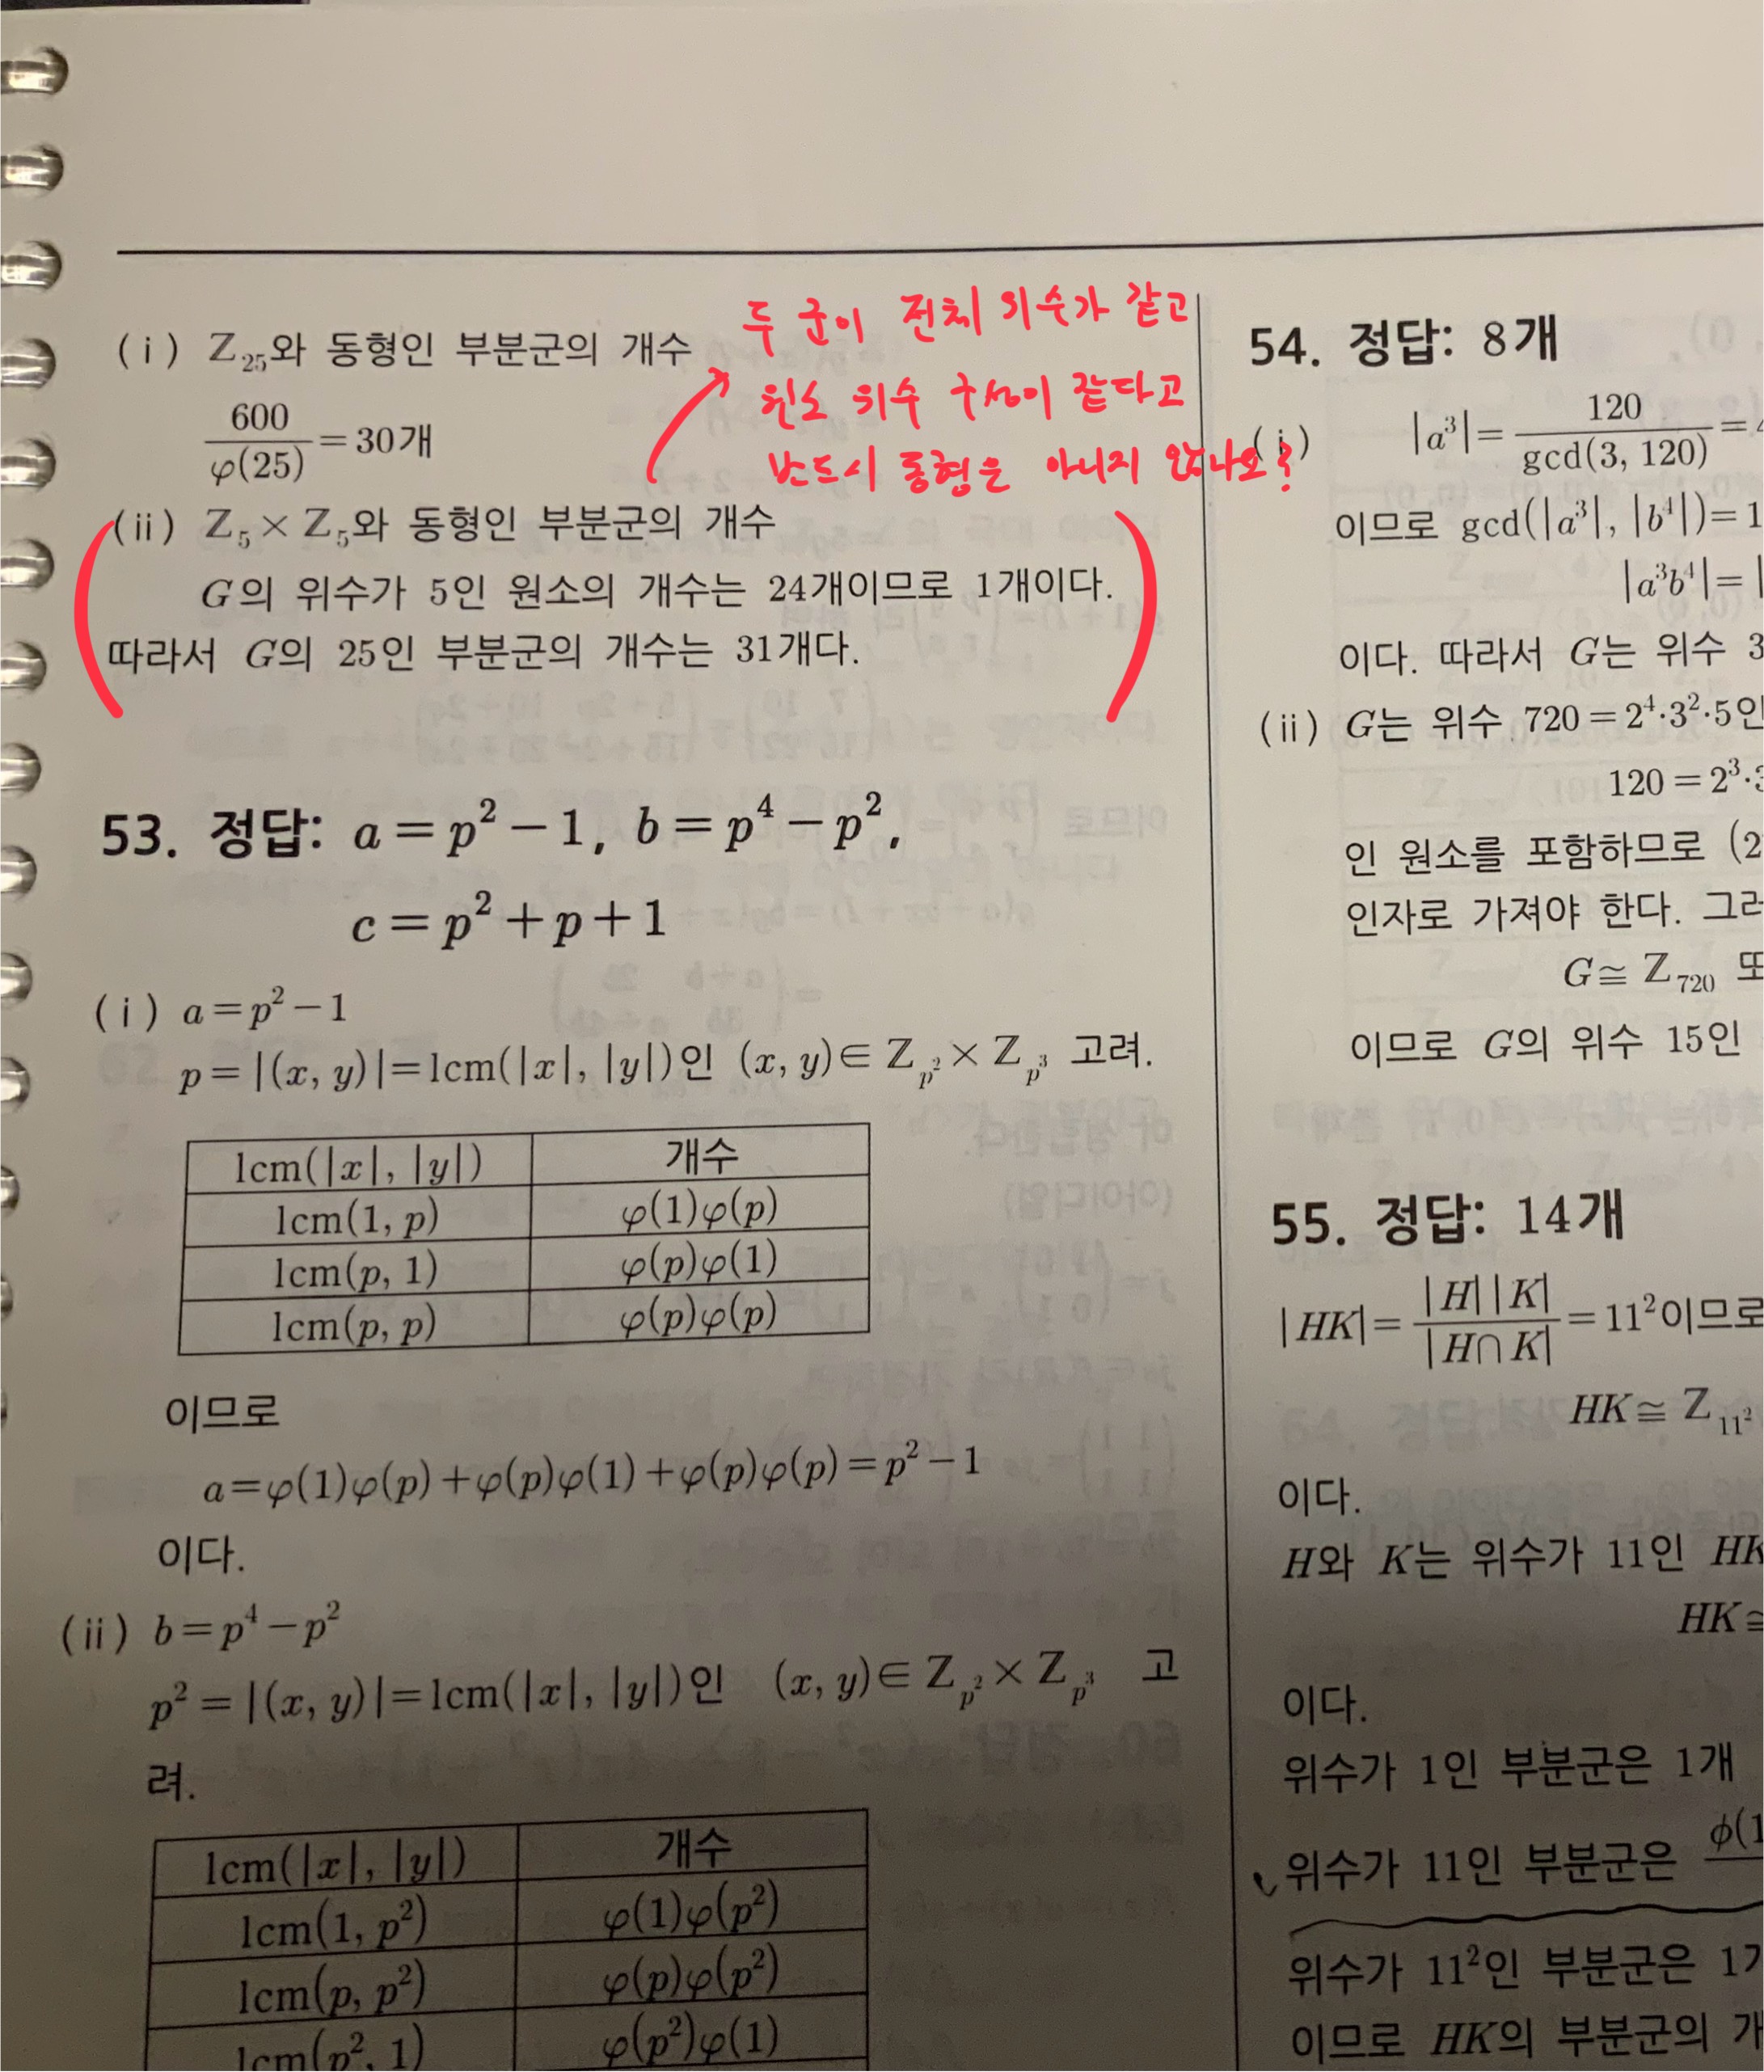 두 군이 전체 위수가 같고
원소 위수 구성이 같다고
반드시 동형은 아니지 않나요?
(ⅰ) Z₂₅와 동형인 부분군의 개수
600/φ(25) = 30개
(ⅱ) Z₅ × Z₅와 동형인 부분군의 개수
G의 위수가 5인 원소의 개수는 24개이므로 1개이다.
따라서 G의 25인 부분군의 개수는 31개다.
53. 정답: a = p² − 1, b = p⁴ − p²,
c = p² + p + 1
(ⅰ) a = p² − 1
p = |(x, y)| = lcm(|x|, |y|)인 (x, y) ∈ Z_p² × Z_p³ 고려.
lcm(|x|, |y|) 개수
lcm(1, p) φ(1)φ(p)
lcm(p, 1) φ(p)φ(1)
lcm(p, p) φ(p)φ(p)
이므로
a = φ(1)φ(p) + φ(p)φ(1) + φ(p)φ(p) = p² − 1
이다.
(ⅱ) b = p⁴ − p²
p² = |(x, y)| = lcm(|x|, |y|)인 (x, y) ∈ Z_p² × Z_p³ 고
려.
lcm(|x|, |y|) 개수
lcm(1, p²) φ(1)φ(p²)
lcm(p, p²) φ(p)φ(p²)
lcm(p², 1) φ(p²)φ(1)
54. 정답: 8개
(ⅰ) |a³| = 120/gcd(3, 120) =
이므로 gcd(|a³|, |b⁴|) = 1
|a³b⁴| = |
이다. 따라서 G는 위수 3
(ⅱ) G는 위수 720 = 2⁴·3²·5인
120 = 2³·3
인 원소를 포함하므로 (2
인자로 가져야 한다. 그러
G ≅ Z₇₂₀ 또
이므로 G의 위수 15인
55. 정답: 14개
|HK| = |H||K|/|H∩K| = 11²이므로
HK ≅ Z₁₁²
이다.
H와 K는 위수가 11인 HK
HK ≅
이다.
위수가 1인 부분군은 1개
위수가 11인 부분군은 ϕ(1
위수가 11²인 부분군은 1개
이므로 HK의 부분군의 개